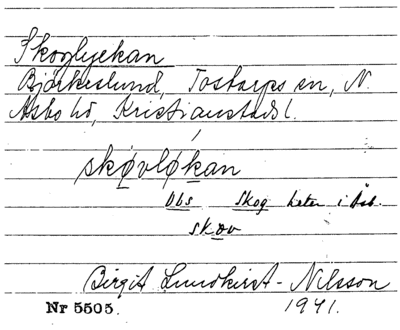 Skoglyckan
Björkeslund, Tostarps sn, N.
Åsbo hd, Kristianstads l.
skøvløkan
Obs Skog heter i Åsb.
skov
Birgit Lundkvist-Nilsson
Nr 5505. 1941.